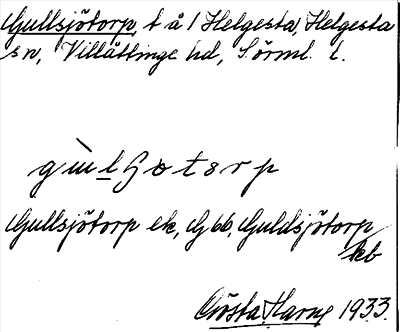 Gullsjötorp, t å 1 Helgesta, Helgesta
sn, Villåttinge hd, Sörml. l.
Gullsjötorp ek, G 66, Guldsjötorp
kb
Gösta Harne 1933.